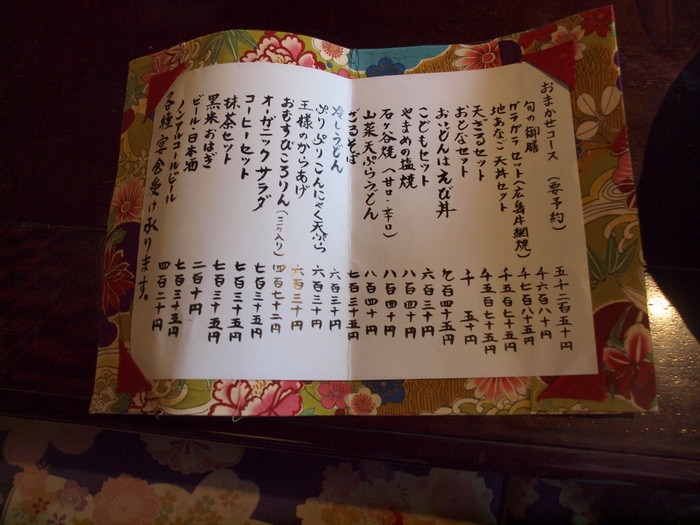 おまかせコース（要予約） 五千二百五十円
旬の御膳 千六百八十円
ガラガラセット（広島牛網焼） 千七百八十五円
地あなご天丼セット 千五百七十五円
天ざるセット 千五百七十五円
おとなセット 千五十円
おいどんはえび丼 七百四十五円
こどもセット 六百三十円
やまめの塩焼 八百四十円
石ヶ谷焼（甘口・辛口） 八百四十円
山菜天ぷらうどん 八百四十円
ざるそば 七百三十五円
冷しうどん 六百三十円
ぷりぷりこんにゃく天ぷら 六百三十円
王様のからあげ 六百三十円
おむすびころりん（三ヶ入り） 四百七十二円
オーガニックサラダ 七百三十五円
コーヒーセット 七百三十五円
抹茶セット 七百三十五円
黒米おはぎ 二百十円
ビール・日本酒 七百三十五円
ノンアルコールビール 四百二十円
各種宴会受け承ります。